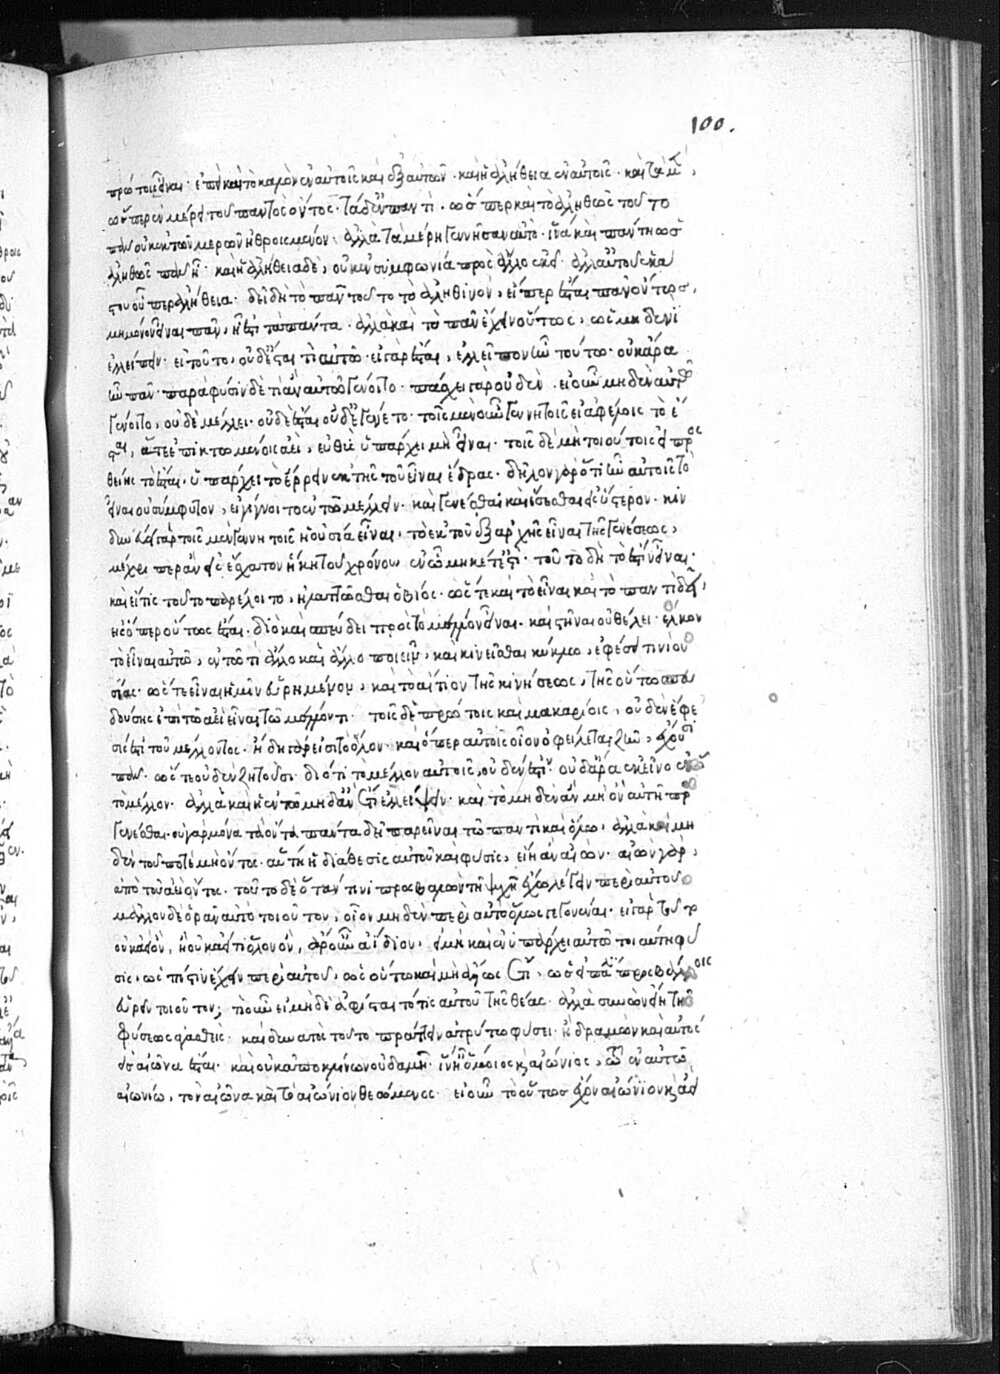 πρώτοις εἶναι· ἐπεὶ καὶ τὸ καλὸν ἐν αὐτοῖς καὶ ἐξ αὐτῶν· καὶ ἡ ἀλήθεια ἐν αὐτοῖς· καὶ τὰ μὲν,
ὥσπερ ἐν μέρει τοῦ παντὸς ὄντος· τὰ δὲ ἐν παντί· ὥσπερ καὶ τὸ ἀληθῶς τοῦτο
πᾶν οὐκ ἐκ τῶν μερῶν ἠθροισμένον· ἀλλὰ τὰ μέρη γεννῆσαν αὐτό· ἵνα καὶ ταύτη ὡς
ἀληθῶς πᾶν ᾖ· καὶ ἡ ἀλήθεια δὲ, οὐκ ἐν συμφωνία πρὸς ἄλλο ἐκεῖ· ἀλλ' αὐτοῦ ἑκά
στου οὗπερ ἀλήθεια· δεῖ δὴ τὸ πᾶν τοῦτο τὸ ἀληθινὸν, εἴπερ ἔσται πᾶν ὄντως,
μὴ μόνον εἶναι πᾶν, ᾗ ἐστι τὰ πάντα· ἀλλὰ καὶ τὸ πᾶν ἔχειν οὕτως, ὡς μηδενὶ
ἐλλείπειν· εἰ τοῦτο, οὐδ' ἔσται τὶ αὐτῷ· εἰ γὰρ ἔσται, ἐλλεῖπον ἦν τούτω· οὐκ ἄρα
ἦν πᾶν· παρὰ φύσιν δὲ τί ἂν αὐτῷ γένοιτο· πάσχει γὰρ οὐδὲν· εἰ οὖν μηδὲν αὐτῷ
γένοιτο, οὐδὲ μέλλει· οὐδὲ ἔσται οὐδ' ἐγένετο· τοῖς μὲν οὖν γεννητοῖς εἰ ἀφέλοις τὸ ἔ
σται, ἅτε ἐπικτωμένοις ἀεὶ, εὐθὺς ὑπάρχει μὴ εἶναι· τοῖς δὲ μὴ τοιούτοις εἰ προσ
θείης τὸ ἔσται, ὑπάρχει τὸ ἔρρειν ἐκ τῆς τοῦ εἶναι ἕδρας· δῆλον γὰρ ὅτι ἦν αὐτοῖς τὸ
εἶναι οὐ σύμφυτον, εἰ γίγνοιτο ἐν τῶ μέλλειν· καὶ γενέσθαι καὶ ἔσεσθαι εἰς ὕστερον· κιν
δυνεύει γὰρ τοῖς μὲν γεννητοῖς ἡ οὐσία εἶναι, τὸ ἐκ τοῦ ἐξ ἀρχῆς εἶναι τῆς γενέσεως,
μέχρι περ ἂν εἰς ἔσχατον ἥκη τοῦ χρόνου ἐν ᾧ μηκέτ' ἐστι· τοῦτο δὴ τὸ ἔστιν εἶναι·
καὶ εἴ τις τοῦτο παρέλοιτο, ἠλαττῶσθαι ὁ βίος· ὥστε καὶ τὸ εἶναι καὶ τὸ παντὶ δεῖ,
εἰς ὅπερ οὕτως ἔσται· διὸ καὶ σπεύδει πρὸς τὸ μέλλον εἶναι· καὶ στῆναι οὐ θέλει· ἕλκον
τὸ εἶναι αὐτῶ, ἐν τῶ τὶ ἄλλο καὶ ἄλλο ποιεῖν, καὶ κινεῖσθαι κύκλω, ἐφέσει τινὶ οὐ
σίας· ὥστε εἶναι ἡμῖν εὑρημένον, καὶ τὸ αἴτιον τῆς κινήσεως, τῆς οὕτω σπευ
δούσης ἐπὶ τὸ ἀεὶ εἶναι τῶ μέλλοντι· τοῖς δὲ πρώτοις καὶ μακαρίοις, οὐδὲν ἔφε
σίς ἐστι τοῦ μέλλοντος· ἤδη γάρ εἰσι τὸ ὅλον· καὶ ὅπερ αὐτοῖς οἷον ὀφείλεται ζῆν, ἔχουσι
πᾶν· ὥστε οὐδὲν ζητοῦσι· διότι τὸ μέλλον αὐτοῖς, οὐδέν ἐστιν· οὐδ' ἄρα ἐκεῖνο ἐν ᾧ
τὸ μέλλον· ἀλλὰ καὶ ἡ ἐν τῶ μηδ' ἂν ἔτι ἐλλείψειν· καὶ τὸ μηδὲν ἂν μὴ ὂν αὐτῆ προσ
γενέσθαι· οὐ γὰρ μόνα τὰ ὄντα πάντα δεῖ παρεῖναι τῶ παντὶ καὶ ὅλω, ἀλλὰ καὶ μη
δὲν τοῦ ποτὲ μὴ ὄντος· αὕτη ἡ διάθεσις αὐτοῦ καὶ φύσις, εἴη ἂν αἰών· αἰὼν γὰρ,
ἀπὸ τοῦ ἀεὶ ὄντος· τοῦτο δὲ ὅταν τινὶ προσβαλὼν τῆ ψυχῆ ἔχω λέγειν περὶ αὐτοῦ
μᾶλλον δὲ ὁρᾶν αὐτὸ τοιοῦτον, οἷον μηδὲν περὶ αὐτὸ ὅλως γεγονέναι· εἰ γὰρ τοῦτο
οὐκ ἀεὶ ὂν, ἢ οὐκ ἀεί τι ὅλον ὂν, ἆρ' οὖν ἀΐδιον, εἰ μὴ καὶ ἐνυπάρχει αὐτῶ τοιαύτη φύ
σις, ὡς πίστιν ἔχειν περὶ αὐτοῦ, ὡς οὕτω καὶ μὴ ἄλλως ἔτι, ὡς εἰ πάλιν προσβάλοις
εὑρεῖν τοιοῦτον; τί οὖν εἰ μηδὲ ἀφίσταιτό τις αὐτοῦ τῆς θέας· ἀλλὰ συνὼν εἴη τῆς
φύσεως ἀγασθεὶς· καὶ δυνατὸς τοῦτο πράττειν ἀτρύτω φύσει· ἢ δραμὼν καὶ αὐτὸς
εἰς αἰῶνα ἔσται· καὶ οὐκ ἀποκλίνων οὐδαμῆ· ἵν' ᾖ ὅμοιος καὶ αἰώνιος, τῶ ἐν αὑτῶ
αἰωνίω, τὸν αἰῶνα καὶ τὸ αἰώνιον θεώμενος· εἰ οὖν τὸ οὕτως ἔχον αἰώνιον καὶ ἀεὶ